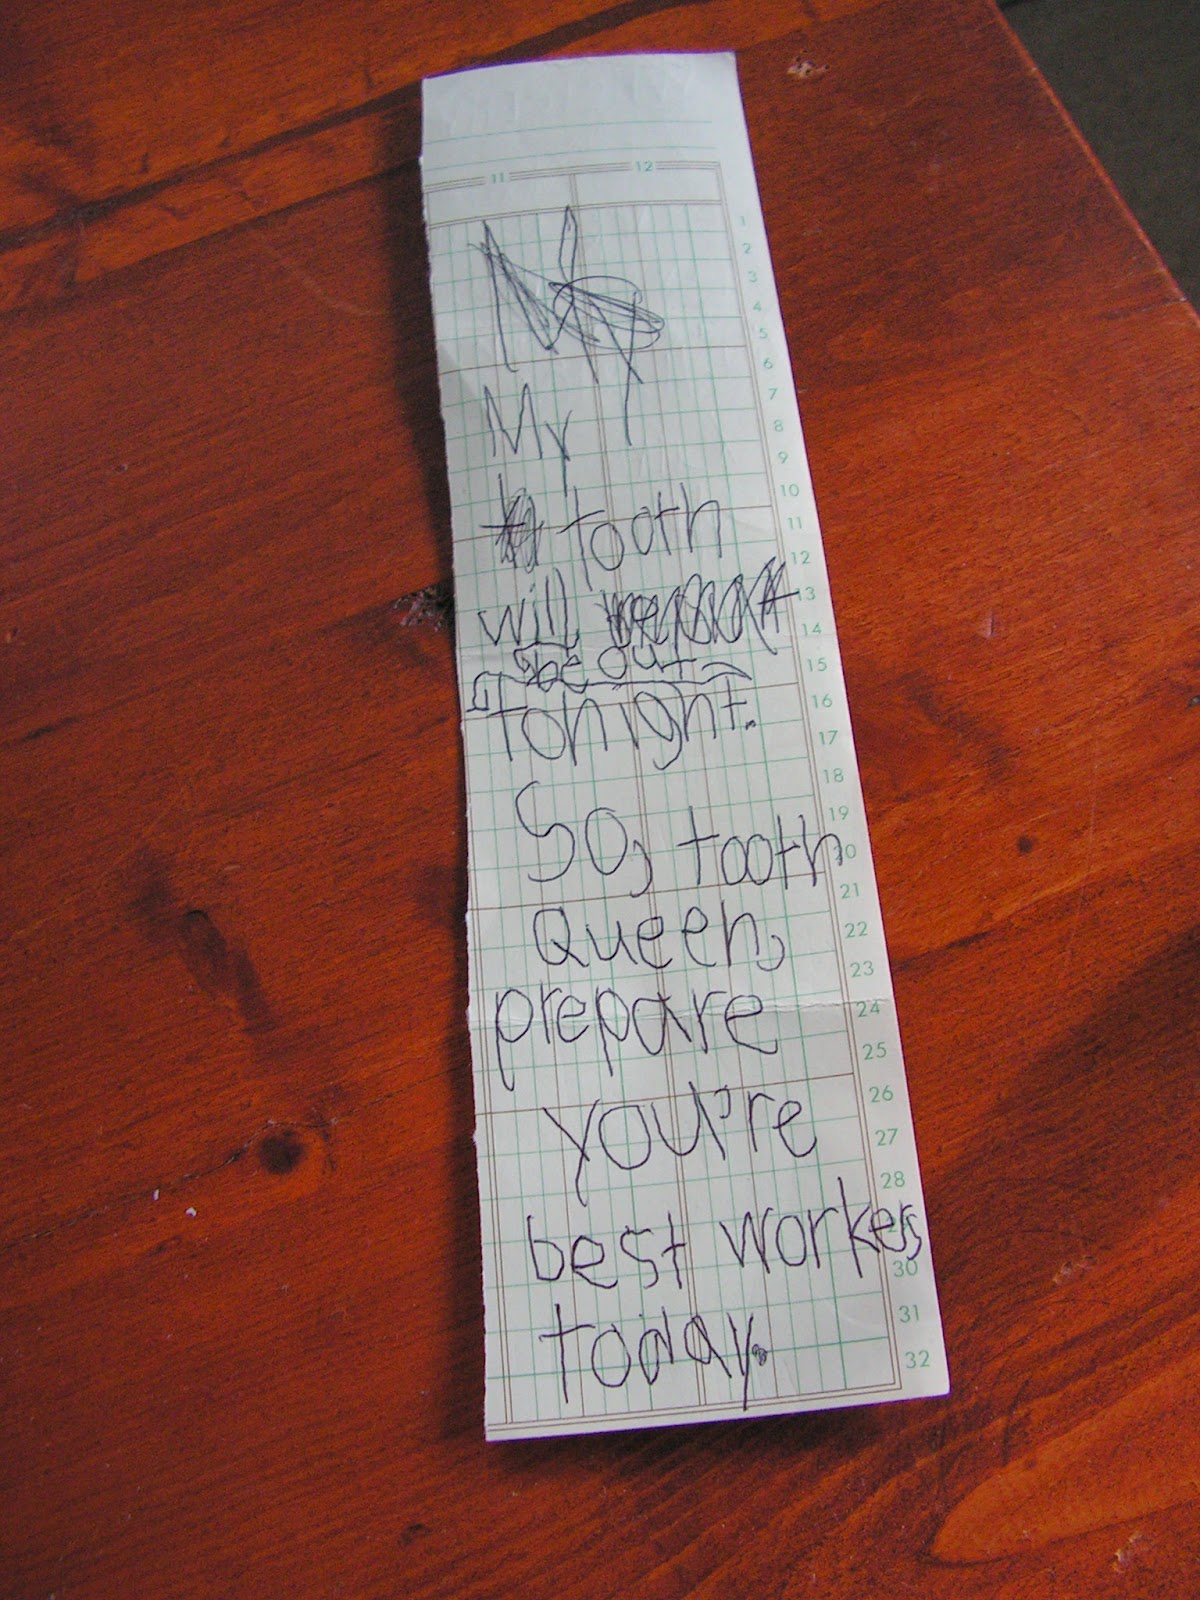 11 12
My
tooth
will
be out
tonight.
So, tooth
Queen,
prepare
you're
best workers
today.
1
2
3
4
5
6
7
8
9
10
11
12
13
14
15
16
17
18
19
20
21
22
23
24
25
26
27
28
30
31
32